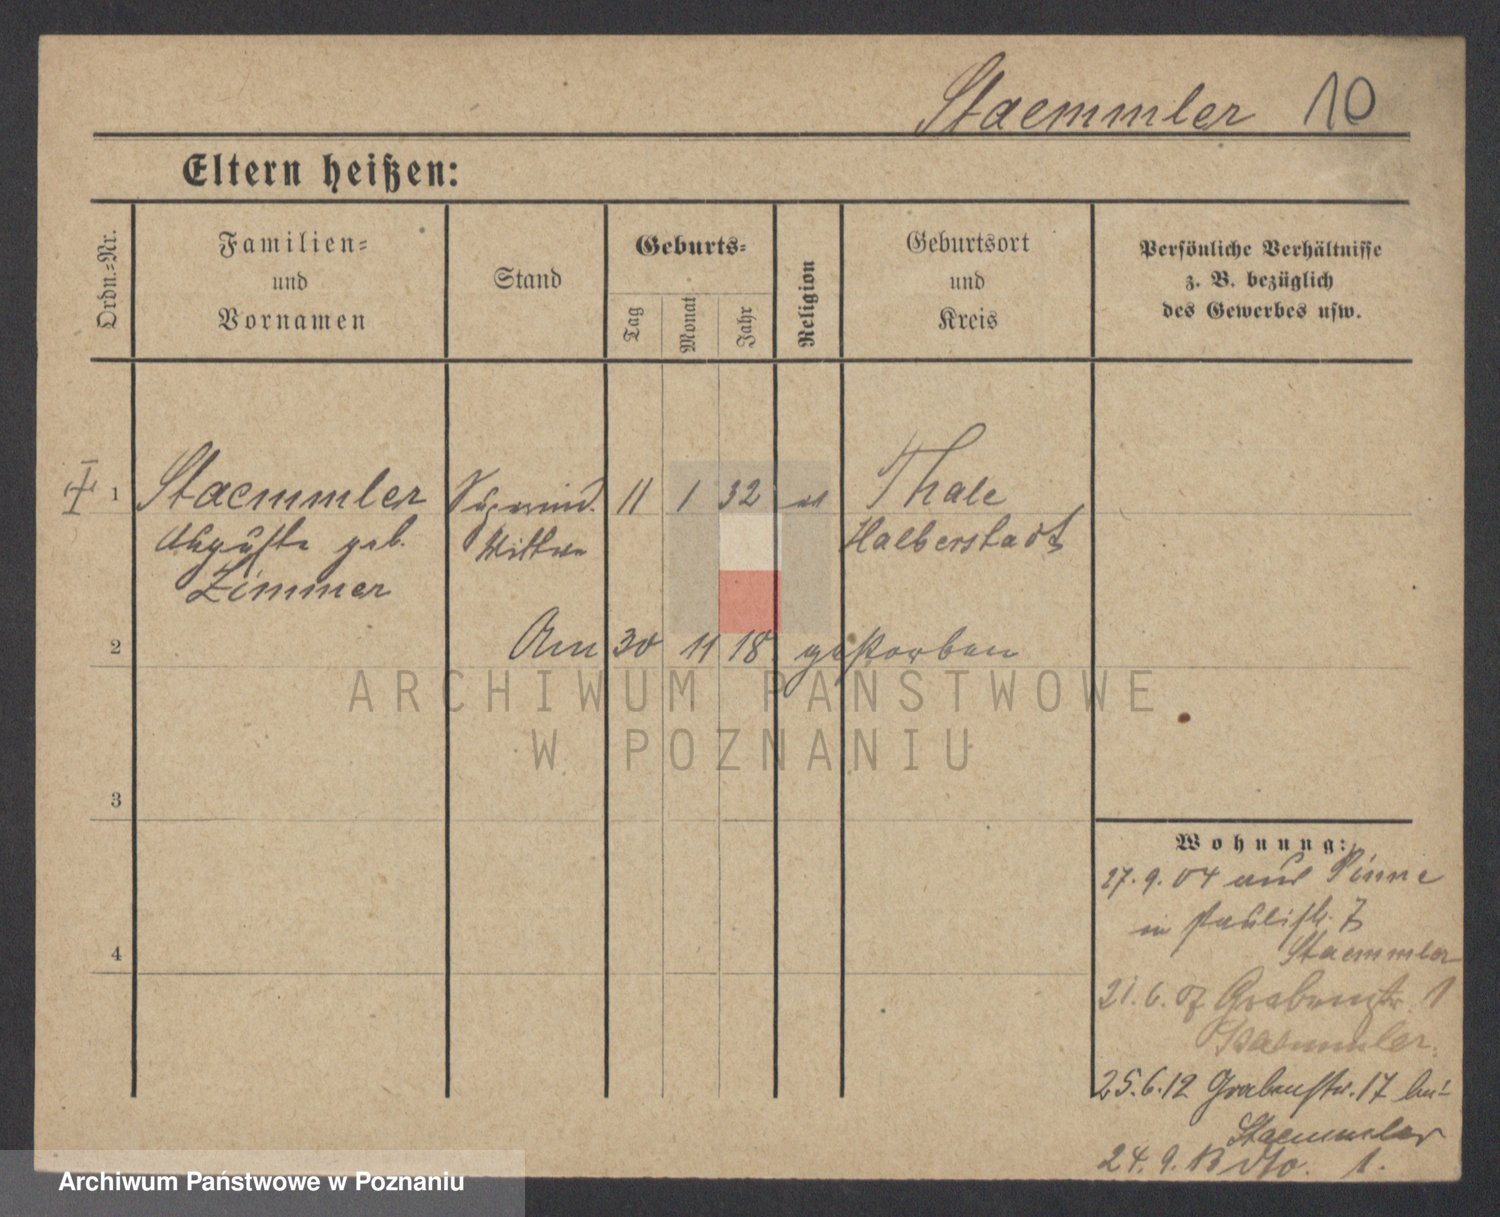 Staemmler 10
Eltern heißen:
Ordn.-Nr.
Familien-
und
Vornamen
Stand
Geburts-
Tag
Monat
Jahr
Religion
Geburtsort
und
Kreis
Persönliche Verhältnisse
z. B. bezüglich
des Gewerbes usw.
1 Staemmler 11 1 32 ev Thale
Auguste geb. Wittwe Halberstadt
Zimmer
2 Am 30 11 18. gestorben
ARCHIWUM PAŃSTWOWE
W POZNANIU
3
Wohnung:
27.9.04 aus Pinne
in Paulistr. 7
Staemmler
4
21.6.07 Grabenstr. 1
Staemmler.
25.6.12 Grabenstr. 17 bei
Staemmler
24.9. dto. 1.
Archiwum Państwowe w Poznaniu